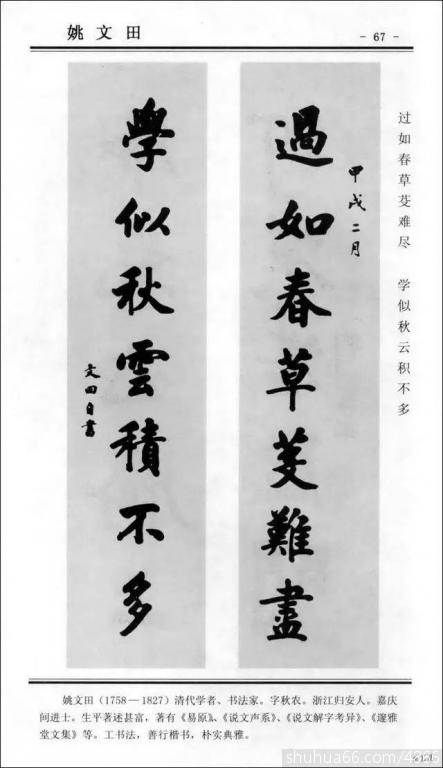 姚文田
- 67 -
過如春草芟難盡
甲戌二月
學似秋雲積不多
文田自書
过如春草芟难尽 学似秋云积不多
姚文田（1758—1827）清代学者、书法家。字秋农。浙江归安人。嘉庆
间进士。生平著述甚富，著有《易原》、《说文声系》、《说文解字考异》、《邃雅
堂文集》等。工书法，善行楷书，朴实典雅。